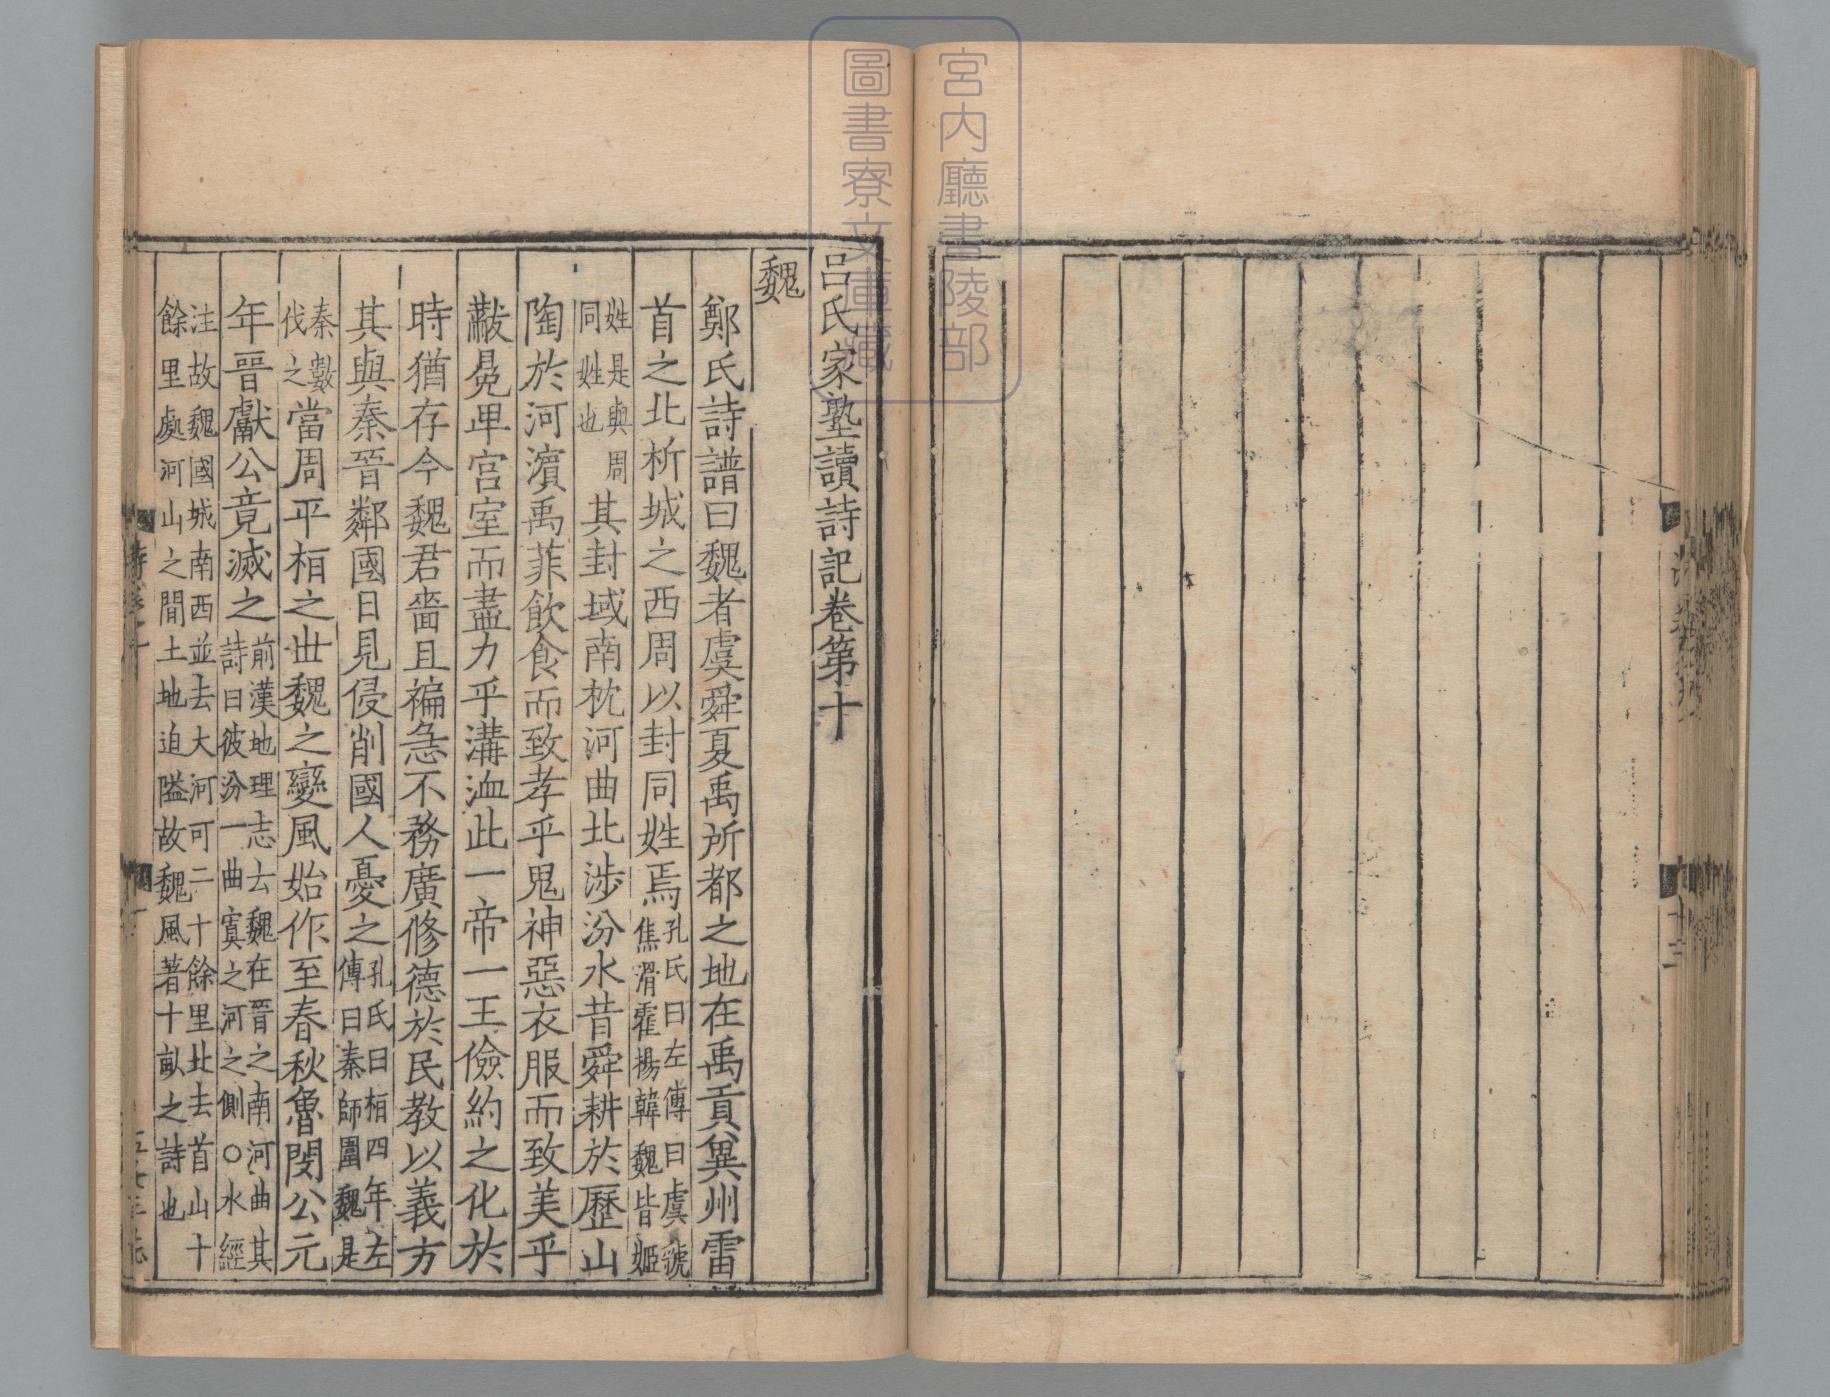 宮内廳書陵部
圖書寮文庫藏
呂氏家塾讀詩記卷第十
魏
鄭氏詩譜曰魏者虞舜夏禹所都之地在禹貢兾州雷
首之北析城之西周以封同姓焉孔氏曰左傳曰虞虢
焦滑霍揚韓魏皆姬
姓是與周
同姓也
其封域南枕河曲北涉汾水昔舜耕於歷山
陶於河濱禹菲飲食而致孝乎鬼神惡衣服而致美乎
黻冕卑宫室而盡力乎溝洫此一帝一王儉約之化於
時猶存今魏君嗇且褊急不務廣修德於民教以義方
其與秦晉鄰國日見侵削國人憂之孔氏曰桓四年左
傳曰秦師圍魏是
秦數
伐之
當周平桓之丗魏之變風始作至春秋魯閔公元
年晉獻公竟滅之前漢地理志云魏在晉之南河曲其
詩曰彼汾一曲寘之河之側○水經
注故魏國城南西並去大河可二十餘里北去首山十
餘里處河山之間土地迫隘故魏風著十畝之詩也